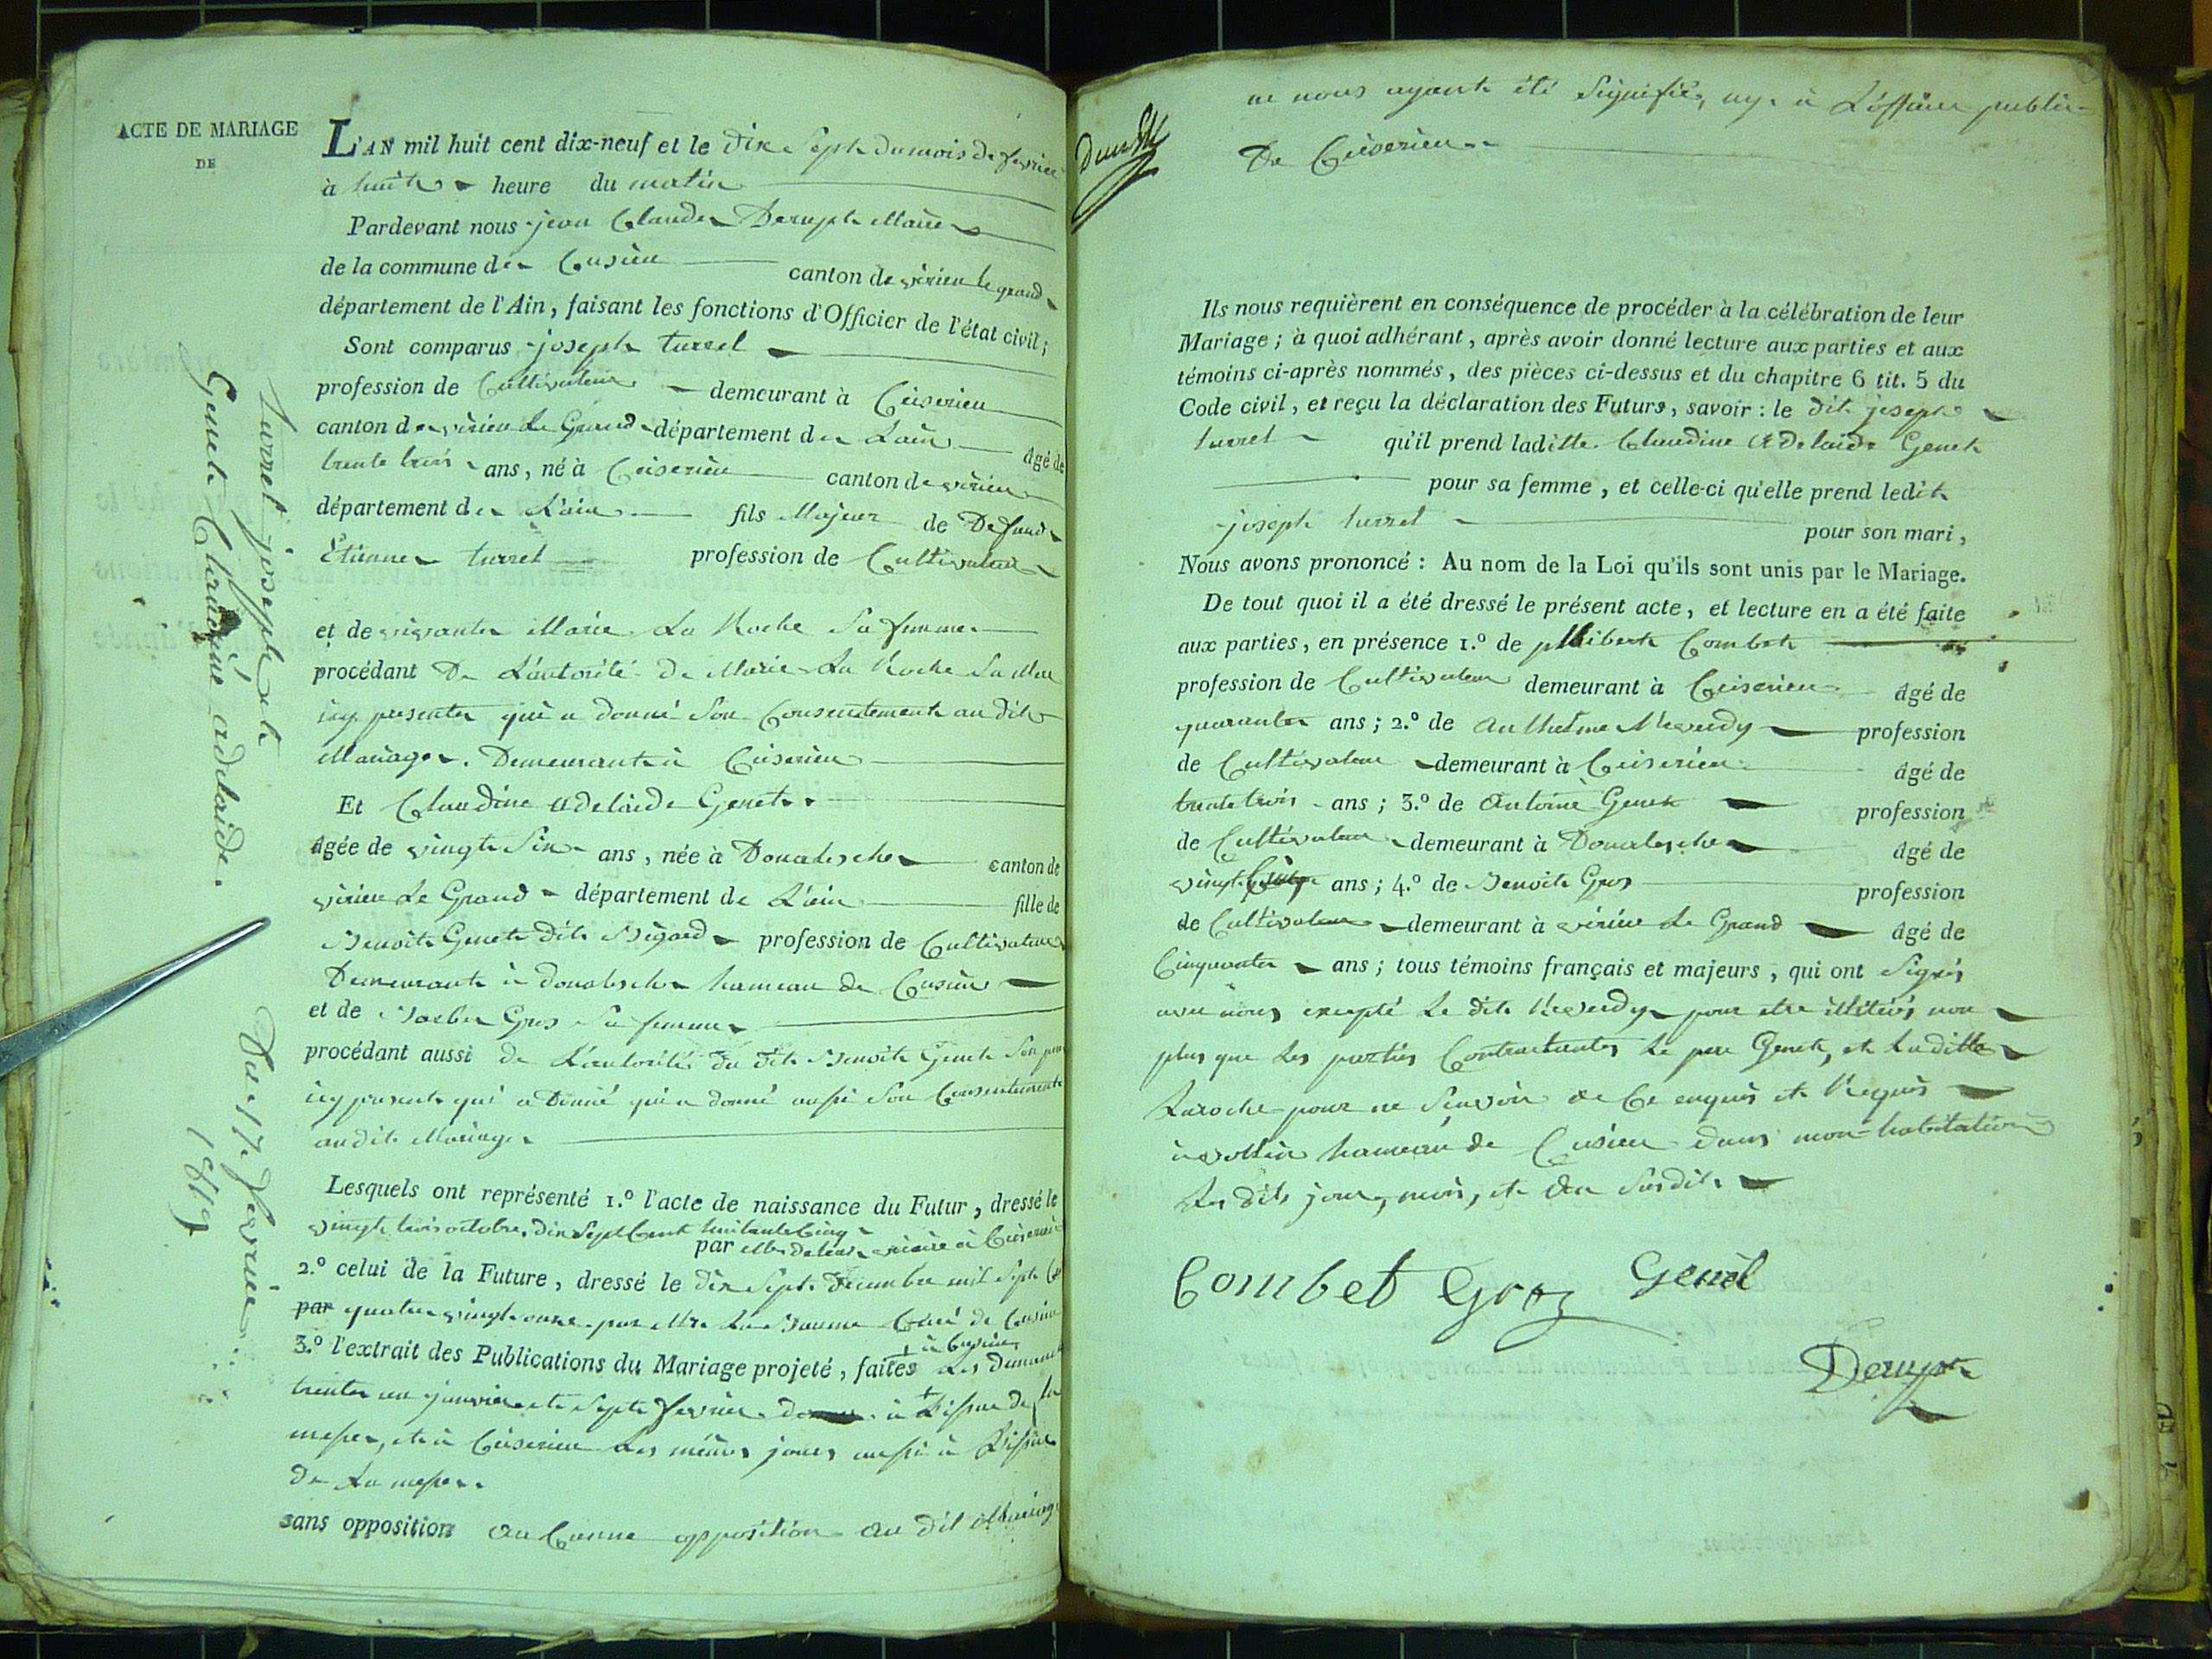 ACTE DE MARIAGE
DE
turret joseph et
Genet Claudine adelaide.
Du 17 fevrier
1819
L'AN mil huit cent dix-neuf et le dix Sept du mois de fevrier
à huit heure du matin
Pardevant nous jean Claude Maire
de la commune de Cusieu canton de virieu le grand
département de l'Ain, faisant les fonctions d'Officier de l'état civil;
Sont comparus joseph turret
profession de Cultivateur demeurant à Ceiserieu
canton de virieu Le Grand département de Lain âgé de
trente trois ans, né à Ceiserieu canton de virieu
département de L'ain fils Majeur de Defunt
Etienne turret profession de Cultivateur
et de vivante Marie La Roche Sa femme
procédant De L'autorité de Marie La Roche Sa Mere
icy presente qui a donné Son Consentement au dit
Mariage. Demeurant à Ceiserieu
Et Claudine adelaide Genet
âgée de vingt Six ans, née à Donalesche canton de
virieu Le Grand département de L'ain fille de
Benoit Genet dit Bigard profession de Cultivateur
Demeurant à donalesche hameau de Cusieu
et de Gros Sa femme
procédant aussi de L'autorité du dit Benoit Genet Son pere
icy present qui a Donné qui a donné aussi Son Consentement
au dit Mariage
Lesquels ont représenté 1.º l'acte de naissance du Futur, dressé le
vingt trois octobre, dix Sept Cent huitante Cinq
par vicaire à Ceiserieu
2.º celui de la Future, dressé le dix Sept Decembre mil Sept Ce
par quatre vingt onze par Mre La Curé de Cusieu
à Cusieu
3.º l'extrait des Publications du Mariage projeté, faites Les dimanc
trente un janvier et Sept fevrier à L'issue de la
messe, et à Ceiserieu Les mêmes jours aussi à L'issue
de La messe.
sans opposition auCunne opposition au dit Mariage
ne nous ayant été Signifié, ny à L'officier public
De Ceiserieu
Ils nous requièrent en conséquence de procéder à la célébration de leur
Mariage; à quoi adhérant, après avoir donné lecture aux parties et aux
témoins ci-après nommés, des pièces ci-dessus et du chapitre 6 tit. 5 du
Code civil, et reçu la déclaration des Futurs, savoir: le dit joseph
turret qu'il prend laditte Claudine Adelaide Genet
pour sa femme, et celle-ci qu'elle prend ledit
joseph turret pour son mari,
Nous avons prononcé: Au nom de la Loi qu'ils sont unis par le Mariage.
De tout quoi il a été dressé le présent acte, et lecture en a été faite
aux parties, en présence 1.º de philibert Combet
profession de Cultivateur demeurant à Ceiserieu âgé de
quarante ans; 2.º de Anthelme Reverdy profession
de Cultivateur demeurant à Ceiserieu âgé de
trente trois ans; 3.º de Antoine Genet profession
de Cultivateur demeurant à Donalesche âgé de
vingt Cinq ans; 4.º de Benoit Gros profession
de Cultivateur demeurant à virieu Le Grand âgé de
Cinquante ans; tous témoins français et majeurs, qui ont Signés
avec nous excepté Le dit Reverdy pour etre illitéré non
plus que Les parties Contractantes Le pere Genet, et La ditte
Laroche pour ne Scavoir de Ce enquis et Requis
à vollien hameau de Cusieu dans mon habitation
Les dits jour, mois, et an Susdit
Combet Groz Genèt